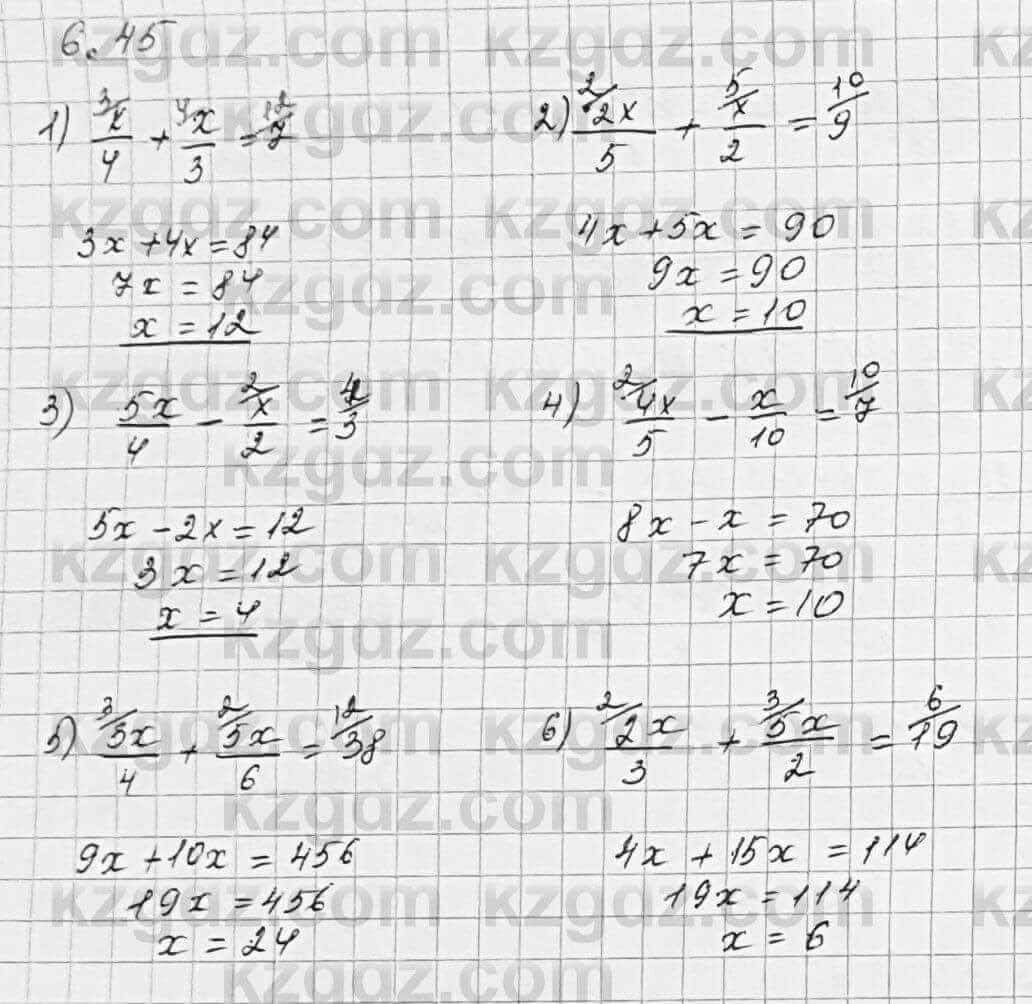 6.45
1) 3/x/4 + 4/x/3 = 12/7
3x + 4x = 84
7x = 84
x = 12
2) 2/2x/5 + 5/x/2 = 10/9
4x + 5x = 90
9x = 90
x = 10
3) 5x/4 - 2/x/2 = 4/3
5x - 2x = 12
3x = 12
x = 4
4) 2/4x/5 - x/10 = 10/7
8x - x = 70
7x = 70
x = 10
5) 3/3x/4 + 2/5x/6 = 12/38
9x + 10x = 456
19x = 456
x = 24
6) 2/2x/3 + 3/5x/2 = 6/19
4x + 15x = 114
19x = 114
x = 6
kzgdz.com